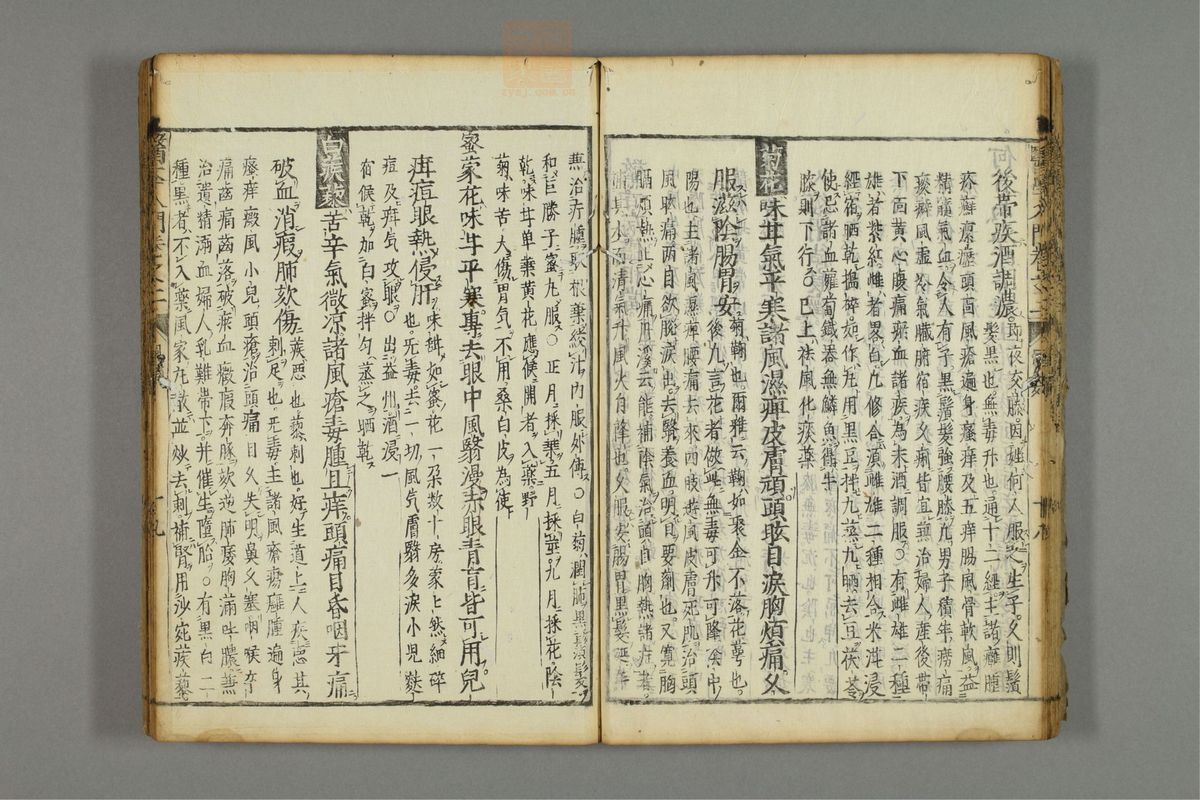 後帶痰酒調濃即夜交藤因姓何人服之生子久則鬚
髮黑也無毒升也通十二經主諸癰腫
疥癬瘰癧頭面風瘡遍身瘙痒及五痔腸風骨軟風益
精髓氣血令人有子黑鬚髮強腰膝九男子積年癆痛
痰癖風虛冷氣臟腑宿疾久痢皆宜兼治婦人產後帶
下面黃心腹痛瘀血諸疾為末酒調服○有雌雄二種
雄者紫紅雌者畧白凡修合須雌雄二種相合米泔浸
經宿晒乾搗碎如作丸用黑豆拌九蒸九晒去豆茯苓
使忌諸血蘿蔔鐵器無鱗魚得牛
膝則下行○已上祛風化痰藥
菊花味甘氣平寒諸風濕痺皮膚頑頭眩目淚胸煩痛久
服滋陰腸胃安菊鞠也爾雅云鞠如聚金不落花蕚也
後凡言花者倣此無毒可升可降陰中
陽也主諸風濕痺腰痛去來四肢遊風皮膚死肌治頭
風眩痛兩目欲脫淚出去翳養血明目要劑也又寬胸
膈煩熱止心痛丹溪云能補陰氣治頭目胸熱諸症者
補肺水而清氣升風火自降也久服安腸胃黑髮延年
兼治疔腫取根葉絞汁內服外傅○白菊潤肺黑鬚髮
和巨勝子蜜丸服○正月採葉五月採莖九月採花陰
乾味甘單葉黃花應候開者入藥野
菊味苦大傷胃氣不用桑白皮為使
蜜蒙花味甘平寒專去眼中風翳漫赤眼青盲皆可用兒
疳痘眼熱侵肝味甜如蜜花一朶數十房蒙上然細碎
也無毒去一切風氣膚翳多淚小兒麩
痘及疳氣攻眼○出益州酒浸一
宿候乾加白蜜拌勻蒸之晒乾
白蒺藜苦辛氣微涼諸風瘡毒腫且痒頭痛目昏咽牙痛
破血消瘕肺欬傷蒺惡也藜刺也好生道上人疾惡其
刺足也無毒主諸風瘡瘍癰腫遍身
瘙痒癜風小兒頭瘡治頭痛目久失明鼻久塞咽喉卒
痛齒痛齒落破瘀血癥瘕奔豚欬逆肺痿胸滿吐膿兼
治遺精溺血婦人乳難帶下并催生墮胎○有黑白二
種黑者不入藥風家丸散並炒去刺補腎用沙苑蒺藜